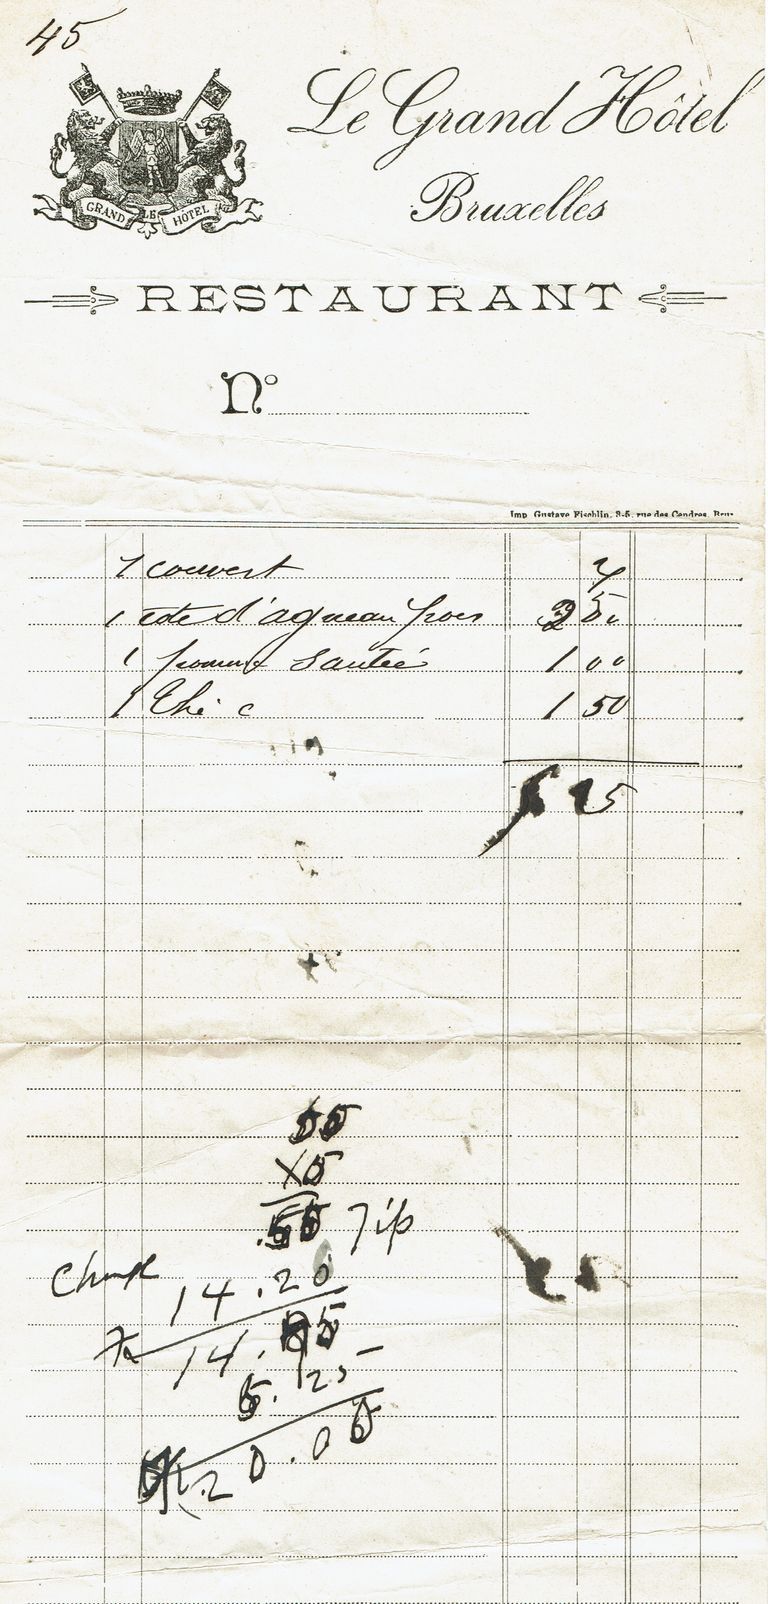 45
GRAND LE HÔTEL
Le Grand Hôtel
Bruxelles
RESTAURANT
Nº
Imp. Gustave Fischlin, 3-5, rue des Cendres, Brux
1 couvert
1 cote d'agneau 50
1 pommes Sautées 1 00
1 Thé c 1 50
5 25
55
X5
.55 Tip
Change 14.20
14.75
5.25
20.00